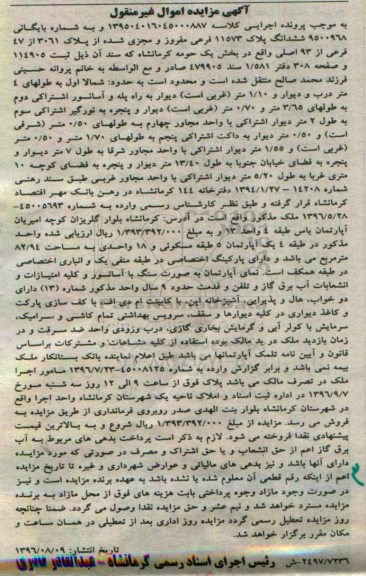 آگهی مزایده اموال غیرمنقول
به موجب پرونده اجرایی کلاسه ۱۳۹۵۰۴۰۱۶۰۴۵۰۰۰۸۸۷ و به شماره بایگانی
۹۵۰۰۹۶۸ ششدانگ پلاک ۱۱۵۷۳ فرعی مفروز و مجزی شده از پلاک ۳۰۶۱ از ۴۷
فرعی از ۹۳ اصلی واقع در بخش یک حومه کرمانشاه که سند آن ذیل ثبت ۱۱۴۹۰۵
و صفحه ۳۰۸ دفتر ۱/۵۸۱ سند ۴۷۹۹۰۵ صادر و مع الواسطه به خانم پروانه حسینی
فرزند محمد صالح منتقل شده است و محدود است به حدود: شمالا اول به طولهای ۴
متر درب و دیوار و ۱/۱۰ متر (غربی است) دیوار به راه پله و آسانسور اشتراکی دوم
به طولهای ۳/۶۵ متر و ۰/۷۰ متر (غربی است) دیوار و پنجره به نورگیر اشتراکی سوم
به طول ۲ متر دیوار اشتراکی با واحد مجاور چهارم به طولهای ۰/۵۰ متر (شرقی
است) و ۰/۵۰ متر دیوار به داکت اشتراکی پنجم به طولهای ۱/۷۰ متر و ۰/۵۰ متر
(غربی است) و ۱/۵۵ متر دیوار اشتراکی با واحد مجاور شرقا به طول ۷ متر دیوار و
پنجره به فضای خیابان جنوبا به طول ۱۳/۴۰ متر دیوار و پنجره به فضای کوچه ۱۰
متری غربا به طول ۵/۲۰ متر دیوار اشتراکی با واحد مجاور غربی طبق سند رهنی
شماره ۱۴۲۰۸ – ۱۳۹۴/۱/۲۷ دفترخانه ۱۴۴ کرمانشاه در رهن بانک مهر اقتصاد
کرمانشاه قرار گرفته و طبق نظر کارشناس رسمی وارده به شماره ۴۵۰۰۵۶۹۳-
۱۳۹۶/۵/۲۸ ملک مذکور واقع است در آدرس: کرمانشاه بلوار گلریزان کوچه امیریان
آپارتمان یاس طبقه ۴ واحد ۱۳ و به مبلغ ۱/۳۹۳/۳۹۲/۰۰۰ ریال ارزیابی شده واحد
مذکور در طبقه ۴ یک آپارتمان ۵ طبقه مسکونی و ۱۸ واحدی به مساحت ۸۲/۹۴
مترمربع می باشد و دارای پارکینگ اختصاصی در طبقه منفی یک و انباری اختصاصی
در طبقه همکف است. نمای آپارتمان به صورت سنگ با آسانسور و کلیه امتیازات و
انشعابات آب برق گاز و تلفن و قدمت حدود ۹ سال واحد مذکور شماره (۱۳) دارای
دو خواب، هال و پذیرایی، آشپزخانه اپن با کابینت ام دی اف، با کف سازی پارکت
و کاغذ دیواری در کلیه دیوارها و سقف، سرویس بهداشتی تمام کاشی و سرامیک،
سرمایش با کولر آبی و گرمایش بخاری گازی، درب ورودی واحد ضد سرقت و در
زمان بازدید ملک در ید مالک بوده استفاده از کلیه مشاعات و مشترکات براساس
قانون و آیین نامه تملک آپارتمانها می باشد طبق اعلام نماینده بانک بستانکار ملک
بیمه نمی باشد و برابر گزارش وارده به شماره ۴۵۰۰۸۱۲۵-۱۳۹۶/۷/۲۳ مامور اجرا
ملک در تصرف مالک می باشد پلاک فوق از ساعت ۹ الی ۱۲ روز سه شنبه مورخ
۱۳۹۶/۹/۷ در اداره ثبت اسناد و املاک ناحیه یک شهرستان کرمانشاه واحد اجرا واقع
در شهرستان کرمانشاه بلوار بنت الهدی صدر روبروی فرمانداری از طریق مزایده به
فروش می رسد. مزایده از مبلغ ۱/۳۹۳/۳۹۲/۰۰۰ ریال شروع و به بالاترین قیمت
پیشنهادی نقدا فروخته می شود. لازم به ذکر است پرداخت بدهی های مربوط به آب
برق گاز اعم از حق انشعاب و یا حق اشتراک و مصرف در صورتی که مورد مزایده
دارای آنها باشد و نیز بدهی های مالیاتی و عوارض شهرداری و غیره تا تاریخ مزایده
اعم از اینکه رقم قطعی آن معلوم شده یا نشده باشد به عهده برنده مزایده است و نیز
در صورت وجود مازاد وجوه پرداختی بابت هزینه های فوق از محل مازاد به برنده
مزایده مسترد خواهد شد و نیم عشر و حق مزایده نقدا وصول می گردد. ضمنا چنانچه
روز مزایده تعطیل رسمی گردد مزایده روز اداری بعد از تعطیلی در همان ساعت و
مکان مقرر برگزار خواهد شد.
تاریخ انتشار: ۱۳۹۶/۰۸/۰۹
۲۴۹۷/۷۲۳۶-ش رئیس اجرای اسناد رسمی کرمانشاه – عبدالقادر قادری